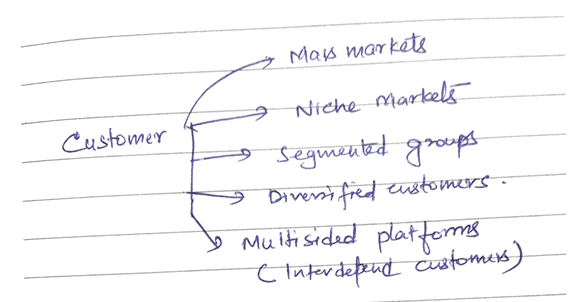 Mass markets
Niche markets
Customer
segmented groups
Diversified customers.
Multisided platforms
(Interdepend customers)